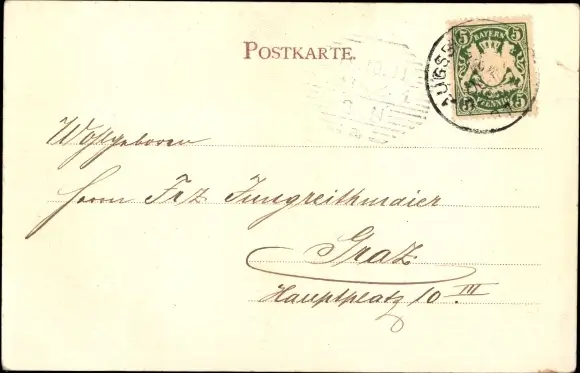 POSTKARTE.
5 BAYERN 5
5 PFENNIG 5
AUGSB
Wohlgeboren
Herrn Frz Jungreithmaier
Graz
Hauptplatz 10 III.